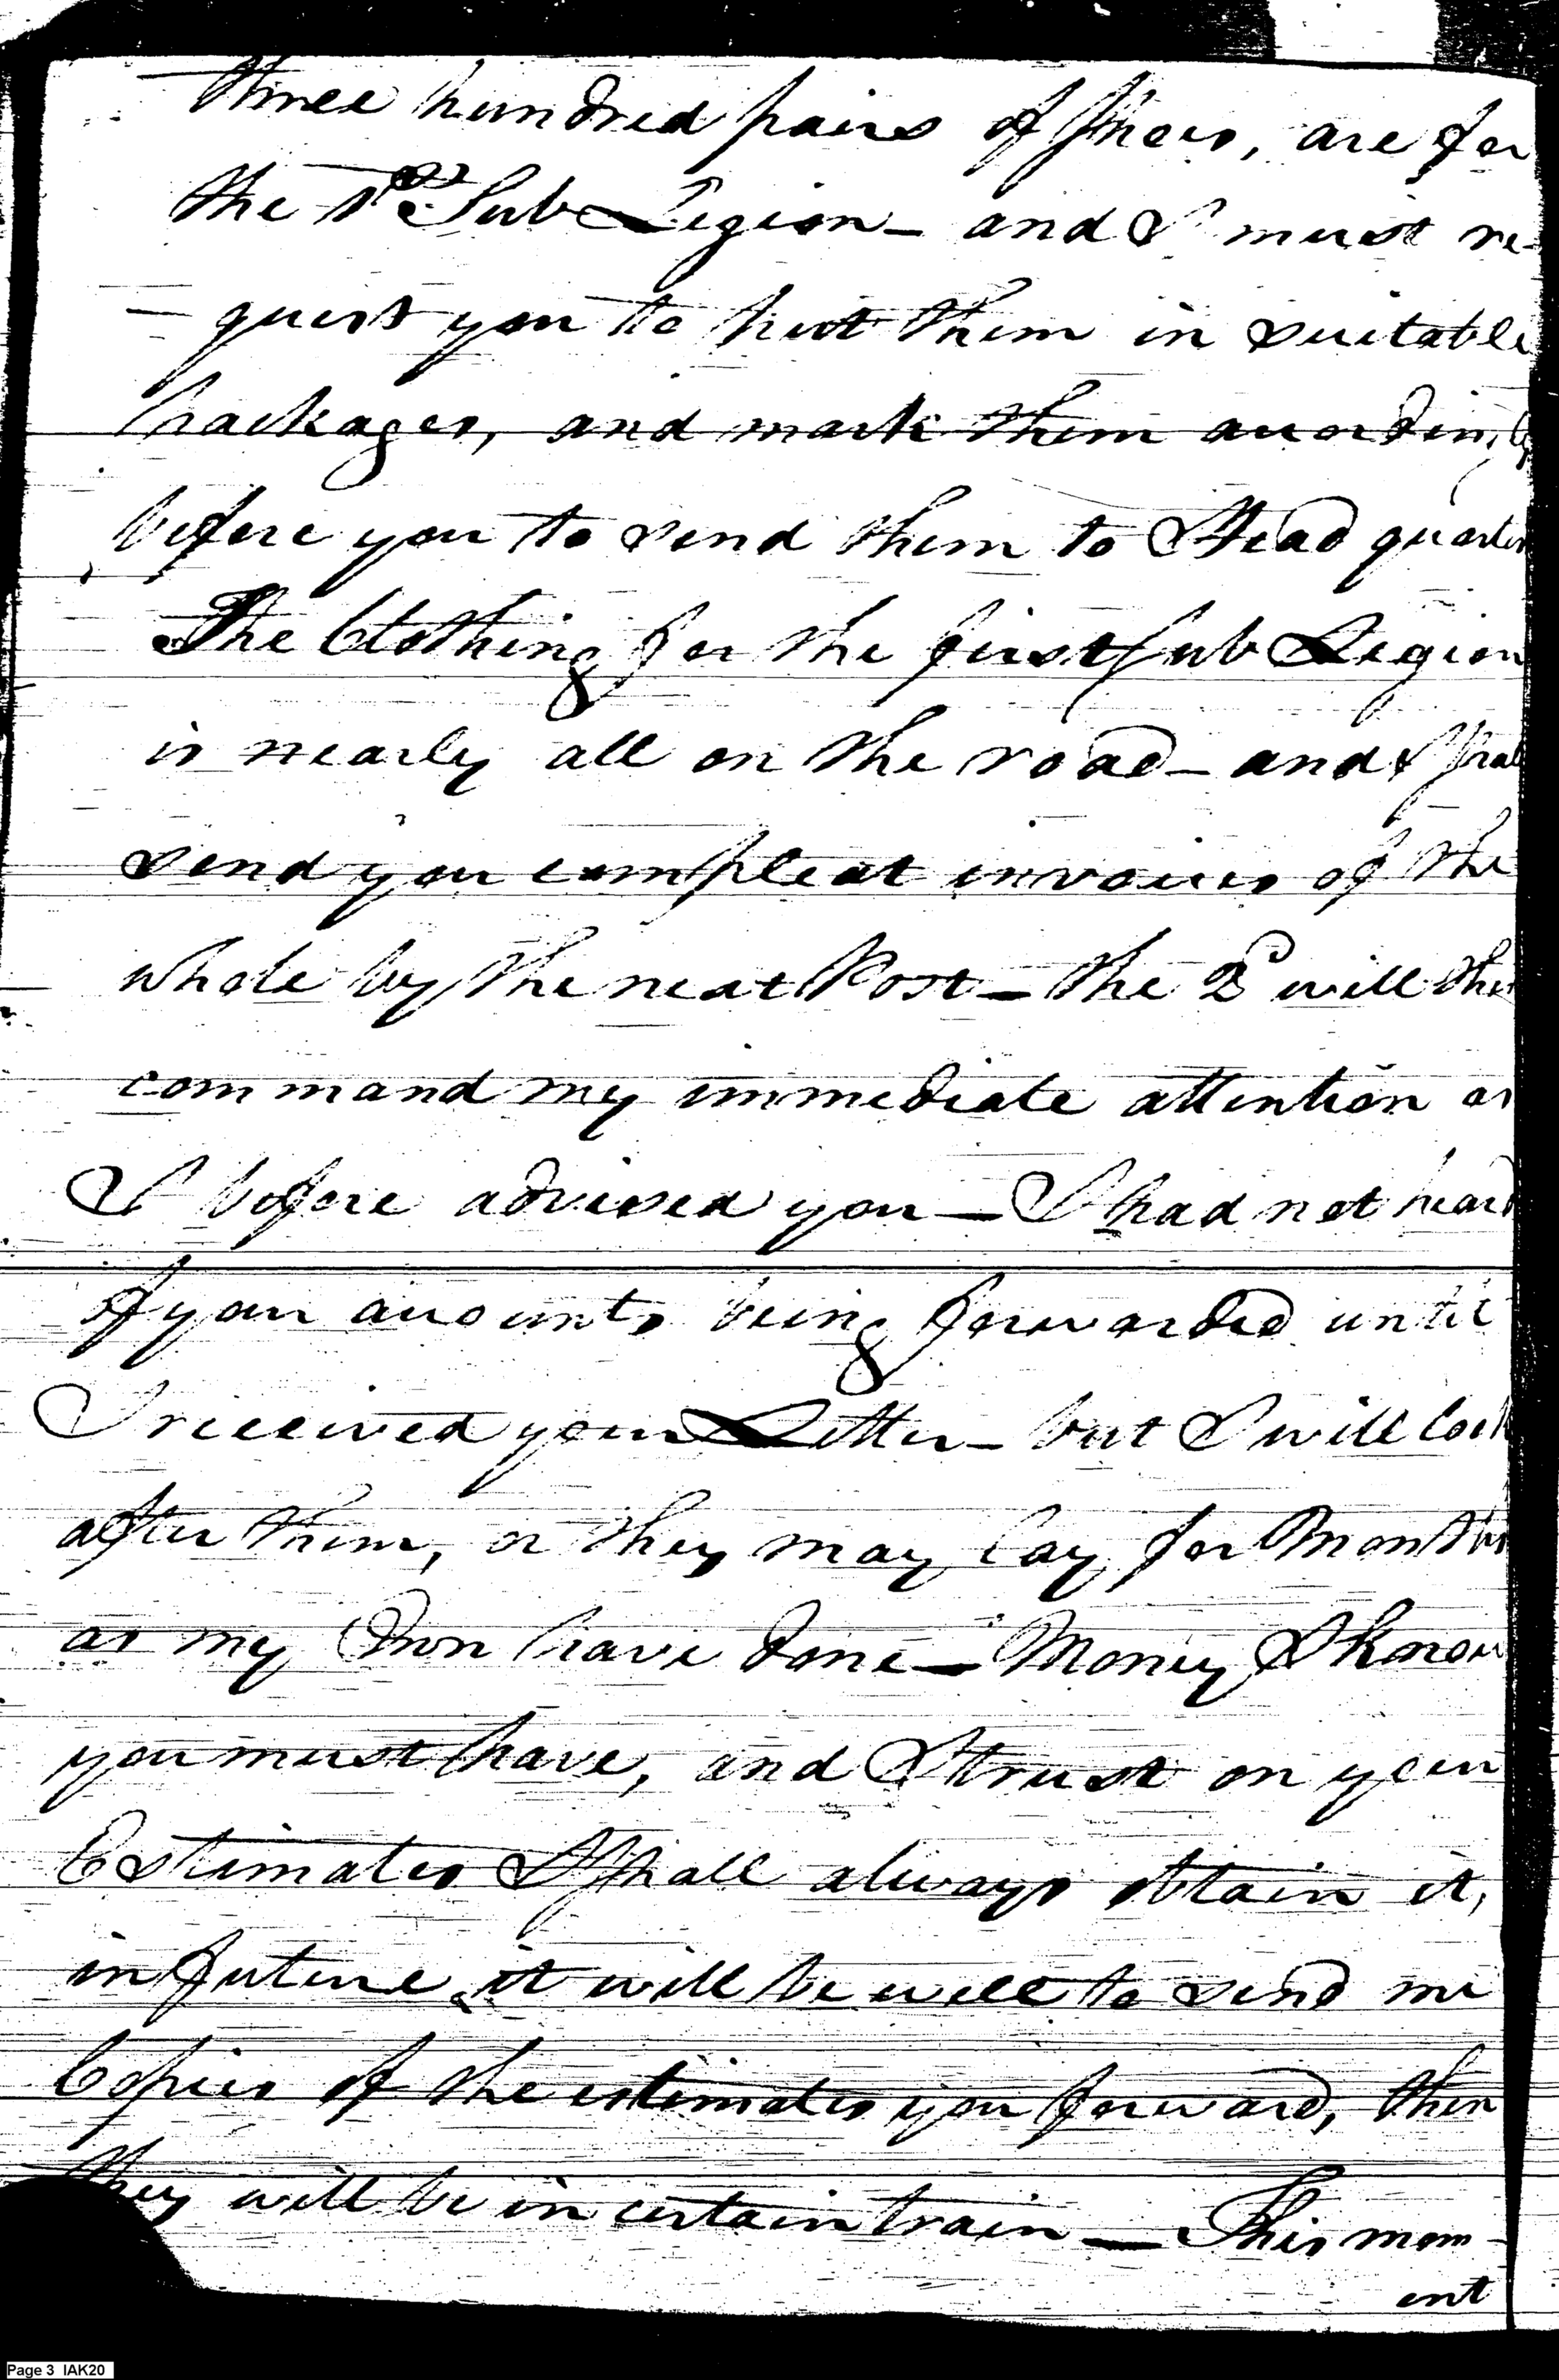 three hundred pairs of shoes, are for
the 1st Sub Legion - and I must re-
- quest you to put them in suitable
packages, and mark them accordingly
before you to send them to Head quarters
The Clothing for the first sub Legion
is nearly all on the road - and I shall
send you compleat invoices of the
whole by the next Post - the 2d will then
command my immediate attention as
I before advised you - I had not heard
of your accounts being forwarded until
I received your Letter - but I will look
after them, or they may lay for Months
as my Own have done - Money I know
you must have, and I trust on your
Estimates I shall always obtain it,
in future it will be well to send me
Copies of the estimates you forward, then
they will be in certain train - This mom-
ent
Page 3 IAK20